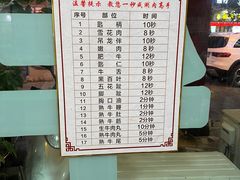 温馨提示 教您一秒成涮肉高手
序号 部位 时间
1 匙柄 10秒
2 雪花肉 8秒
3 吊龙伴 10秒
4 嫩肉 8秒
5 肥牛 12秒
6 匙仁 10秒
7 牛舌 8秒
8 黄百叶 8秒
9 趾 12秒
10 脚趾 12秒
11 胸口油 2分钟
12 熟牛腩 2分钟
13 熟牛肚 2分钟
14 熟牛筋 2分钟
15 生牛肉丸 5分钟
16 熟牛肉丸 2分钟
17 熟牛尾 5分钟